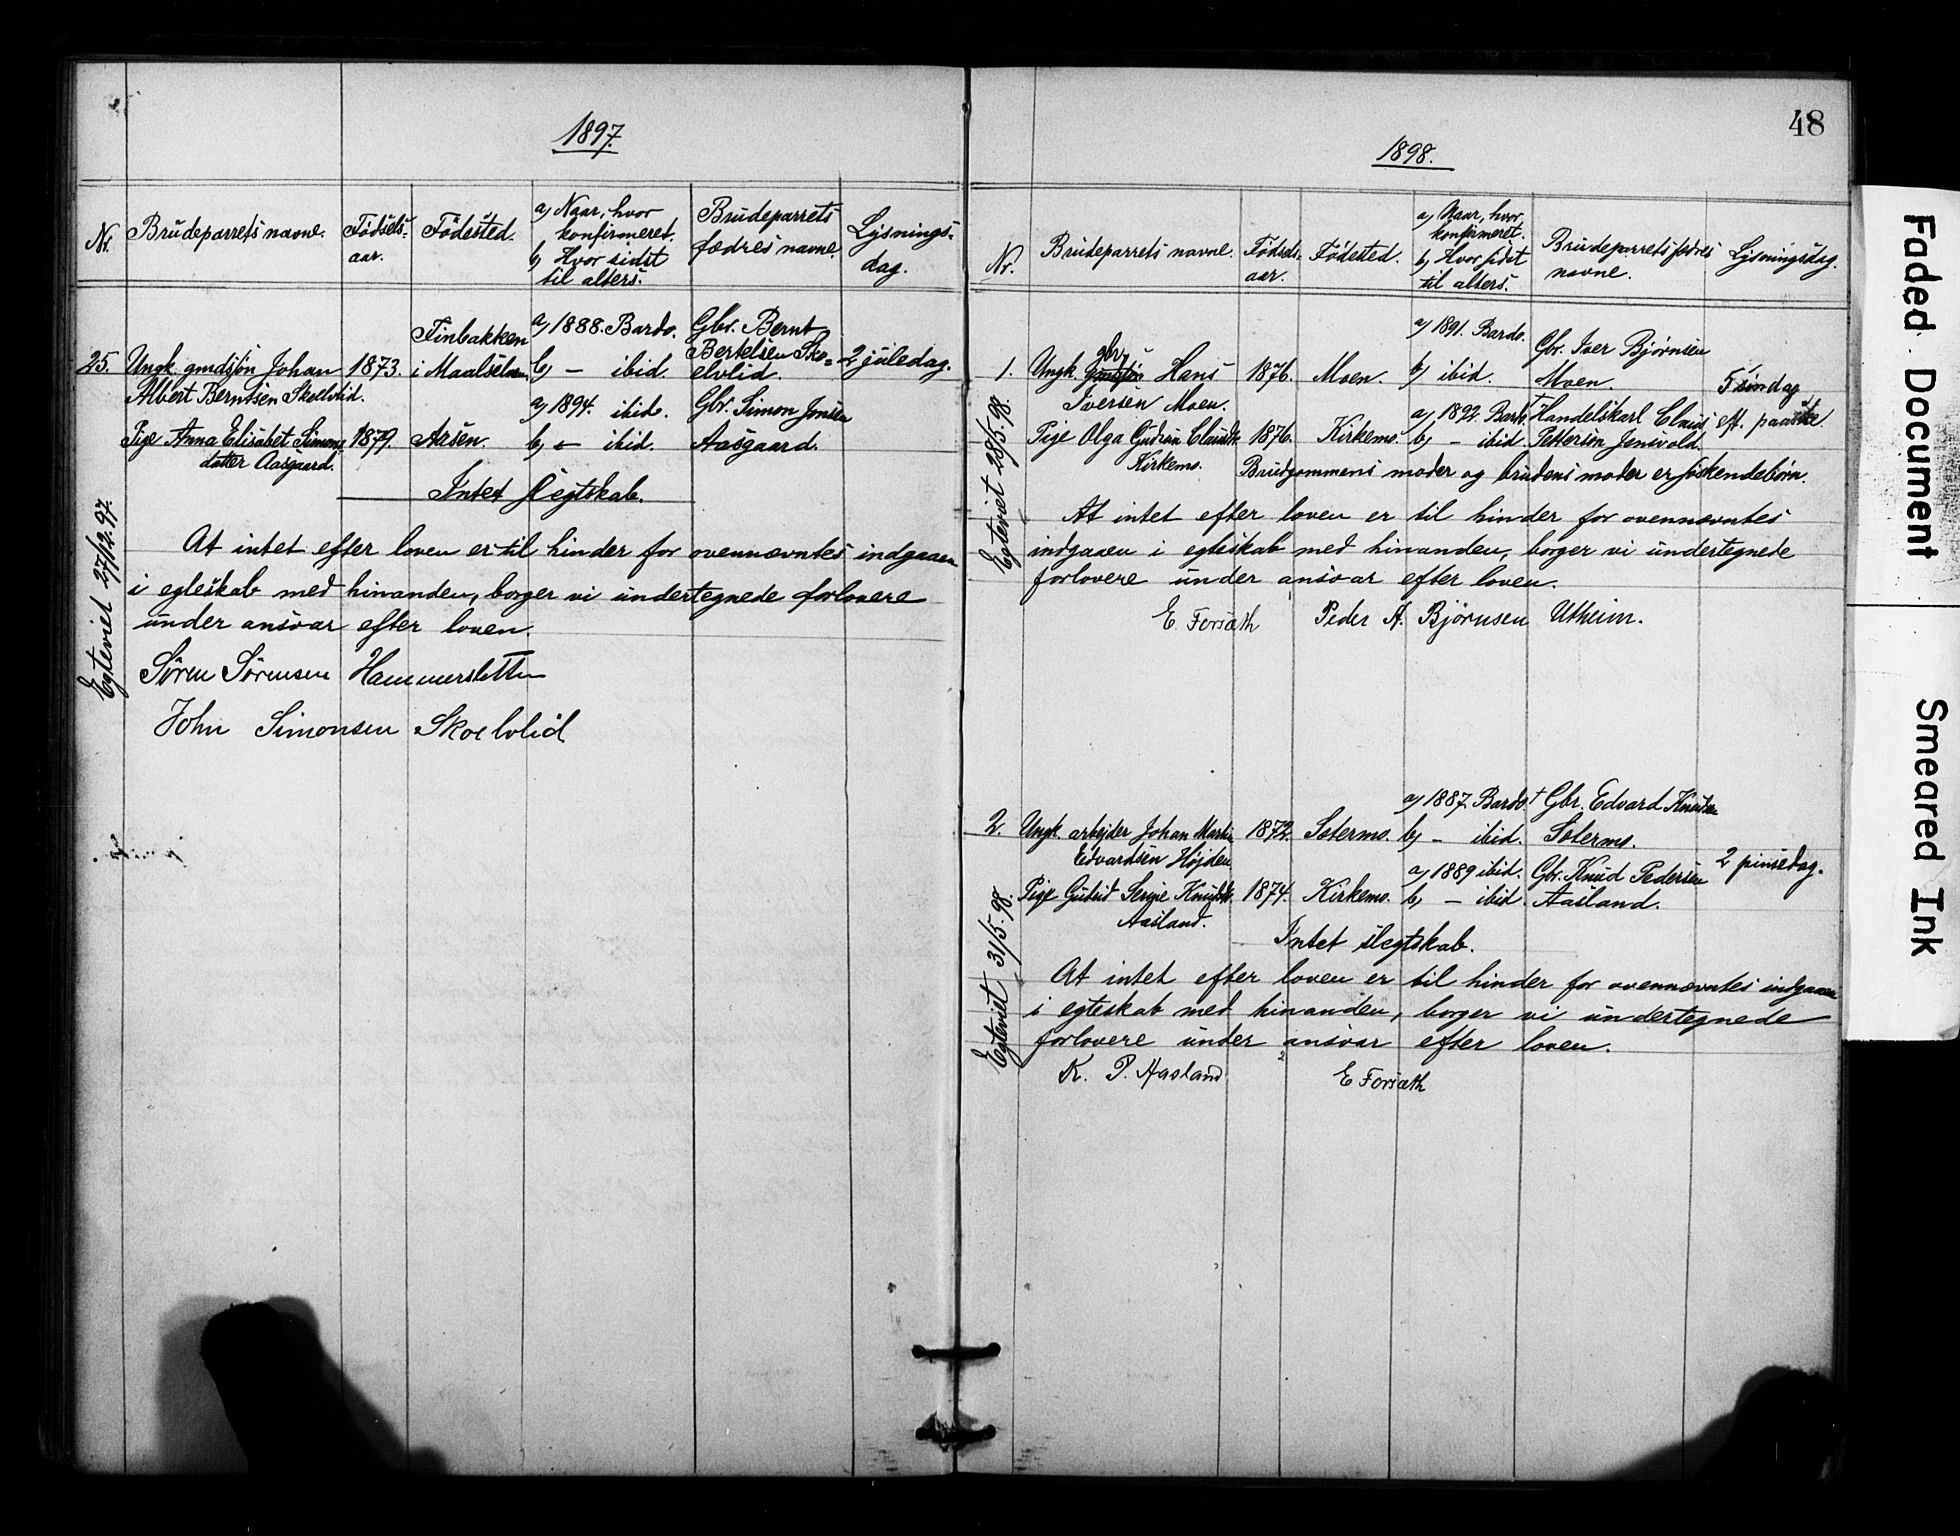 1897.
Nr.
Brudeparrets navne.
Fødsels-
aar.
Fødested.
a) Naar, hvor
konfirmeret.
b) Hvor sidst
til alters.
Brudeparrets
fædres navne.
Lysnings-
dag.
25.
Ungk. gmdsøn Johan
Albert Berntsen Skoelvlid.
1873.
Finbakken
i Maalselven.
a) 1888. Bardo.
b) — ibid.
Gbr. Bernt
Bertelsen Sko-
elvlid.
2 juledag.
Pige Anna Elisabet Simons-
datter Aasgaard.
1879.
Arsen.
a) 1894. ibid.
b) — ibid.
Gbr. Simon Jonsen
Aasgaard.
Intet slegtskab.
At intet efter loven er til hinder for ovennævntes indgaaen
i egteskab med hinanden, borger vi undertegnede forlovere
under ansvar efter loven.
Søren Sørensen Hammersletten
John Simonsen Skoelvlid
Egteviet 27/12. 97.
48
1898.
Nr.
Brudeparrets navne.
Fødsels-
aar.
Fødested.
a) Naar, hvor
konfirmeret.
b) Hvor sidst
til alters.
Brudeparrets fædres
navne.
Lysningsdag.
1.
gbr.
Ungk. Hans
Iversen Moen.
1876.
Moen.
a) 1891. Bardo.
b) ibid.
Gbr. Iver Bjørnsen
Moen.
5 søndag
eft. paaske
Pige Olga Gudrun Claudsd.
Kirkemo.
1876.
Kirkemo.
a) 1892. Bardo.
b) — ibid.
† Handelskarl Claus
Petterson Jensvold.
Brudgommens moder og brudens moder er søskendebørn.
At intet efter loven er til hinder for ovennævntes
indgaaen i egteskab med hinanden, borger vi undertegnede
forlovere under ansvar efter loven.
E. Forsæth Peder A. Bjørnsen Utheim.
Egteviet 28/5. 98.
2.
Ungk. arbejder Johan Martin
Edvardsen Højden
1872.
Sætermo.
a) 1887. Bardo.
b) — ibid.
† Gbr. Edvard Knudsen
Sætermo.
2 pinsedag.
Pige Gudrid Serine Knudsd.
Aasland.
1874.
Kirkemo.
a) 1889 ibid.
b) — ibid.
Gbr. Knud Pedersen
Aasland.
Intet slegtskab.
At intet efter loven er til hinder for ovennævntes indgaaen
i egteskab med hinanden, borger vi undertegnede
forlovere under ansvar efter loven.
K. P. Aasland E Forsæth
Egteviet 31/5. 98.
Faded Document
Smeared Ink